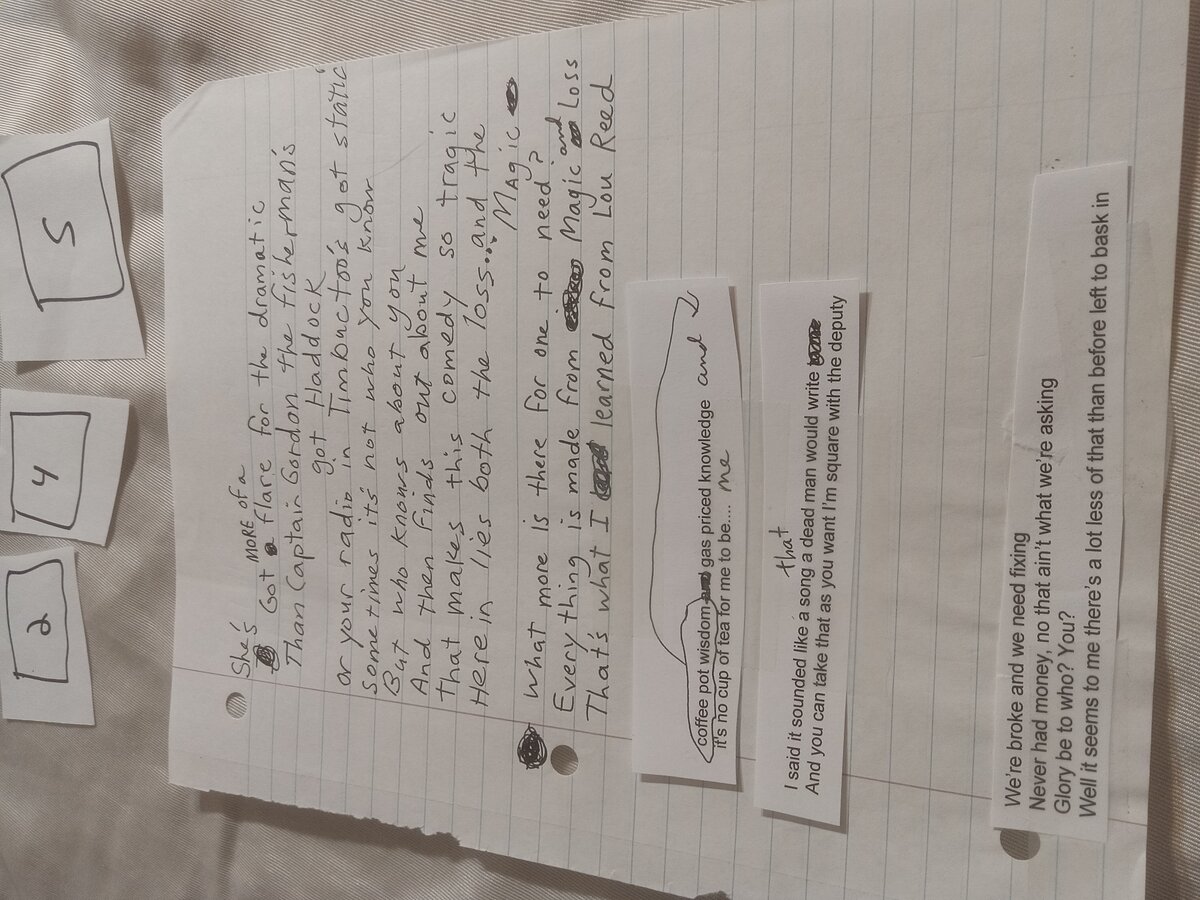 2
4
5
She's
Got MORE of a flare for the dramatic
Than Captain Gordon the fisherman's
got Haddock
or your radio in Timbuctoo's got static
sometimes it's not who you know
But who knows about you
And then finds out about me
that makes this comedy so tragic
Here in lies both the loss... and the
MAgic
what more is there for one to need?
Everything is made from Magic and Loss
That's what I learned from Lou Reed
coffee pot wisdom gas priced knowledge and
it's no cup of tea for me to be.... me
that
I said it sounded like a song a dead man would write
And you can take that as you want I'm square with the deputy
We're broke and we need fixing
Never had money, no that ain't what we're asking
Glory be to who? You?
Well it seems to me there's a lot less of that than before left to bask in